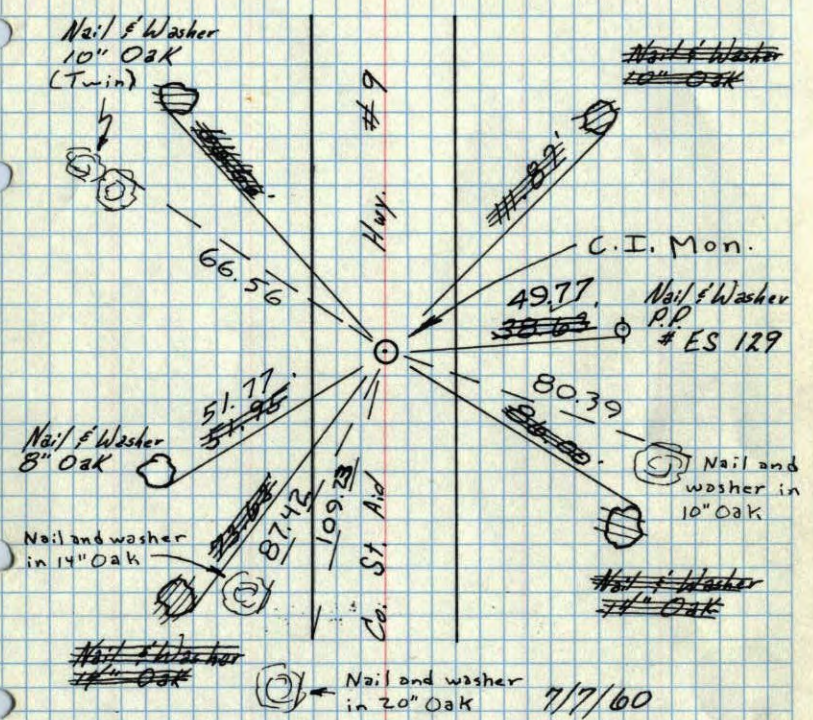 Nail & Washer
10" Oak
(Twin)
Nail & Washer
10" Oak
Hwy. #9
111.87'
C.I. Mon.
66.56
49.77
38.63
Nail & Washer
P.P.
# ES 129
51.77'
51.95
80.39
86.00
Nail & Washer
8" Oak
Nail and
washer in
10" Oak
73.63
87.42
109.23
Co. St. Aid
Nail and washer
in 14" Oak
Nail & Washer
14" Oak
Nail & Washer
14" Oak
Nail and washer
in 20" Oak
7/7/60